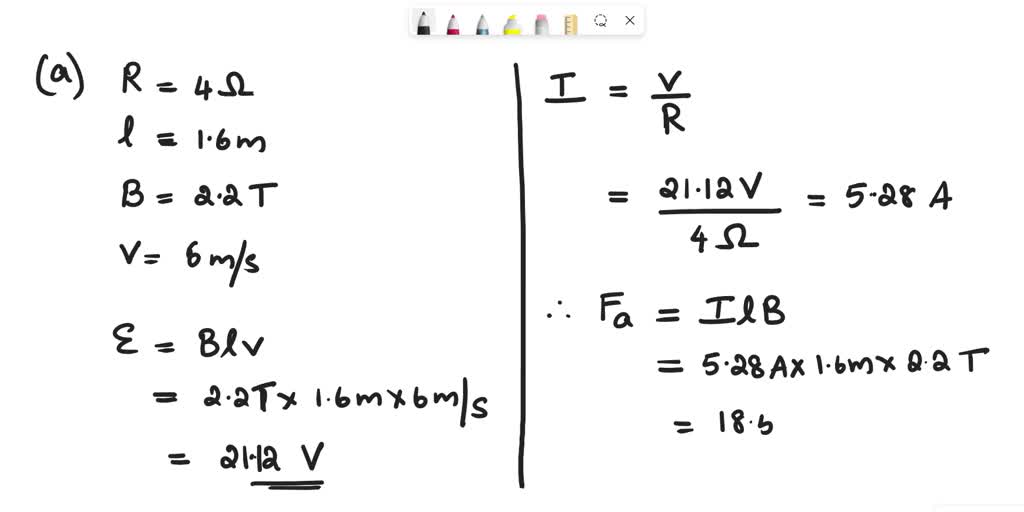 (a) R = 4Ω
l = 1.6m
B = 2.2T
V = 6m/s
ε = Blv
= 2.2T x 1.6m x 6m/s
= 21.12 V
I = V/R
= 21.12V/4Ω = 5.28 A
∴ Fa = IlB
= 5.28A x 1.6m x 2.2T
= 18.5